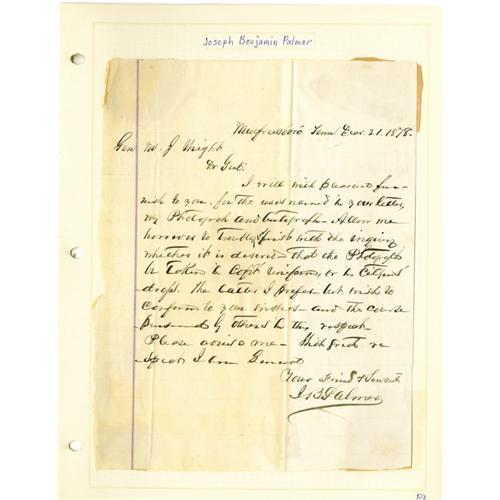 Joseph Benjamin Palmer
Murfreesboro Tenn Decr. 21. 1878.
Gen M. J Wright
Dr Genl:
I will with pleasure fur-
nish to you, for the uses named in your letter,
my Photograph and Autograph. Allow me
however to trouble with the inquiry
whether it is desired that the Photograph
be taken in Cofdt Uniform, or in Citizens
dress. The latter I prefer but wish to
conform to your wishes and the course
pursued by others in this respect.
Please advise me - With great re
spect I am General
Your Friend & Servt
J. B. Palmer